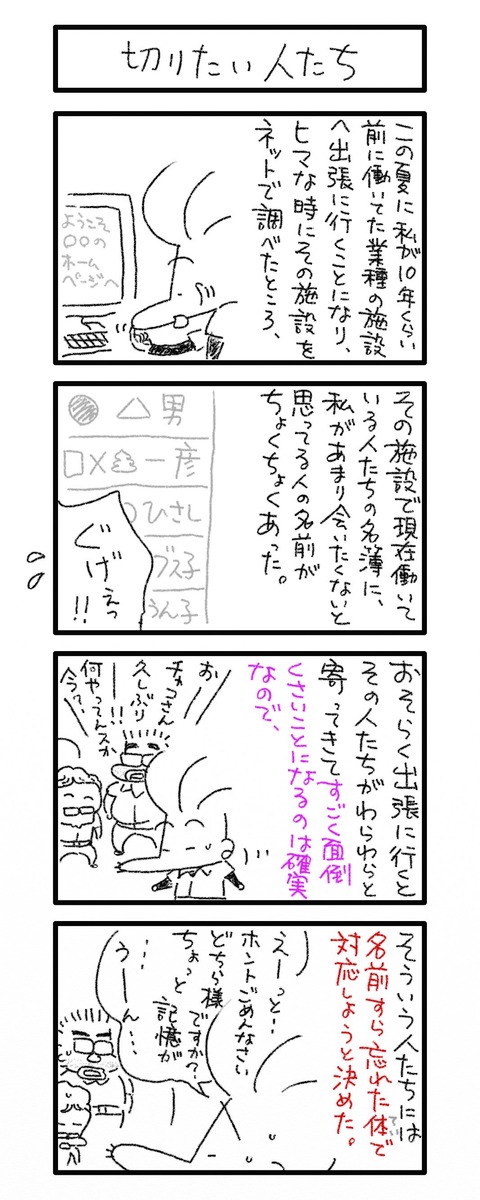 切りたい人たち
この夏に私が10年くらい
前に働いてた業種の施設
へ出張に行くことになり、
ヒマな時にその施設を
ネットで調べたところ、
ようこそ
○○の
ホーム
ページへ
その施設で現在働いて
いる人たちの名簿に、
私があまり会いたくないと
思ってる人の名前が
ちょくちょくあった。
△男
一彦
ひさし
ブス子
うん子
ぐ
げぇっ
!!
おそらく出張に行くと
その人たちがわらわらと
寄ってきてすごく面倒
くさいことになるのは確実
なので、
お
チャコさん
久しぶり
!!
何やってんスか
今って、
そういう人たちには
名前すら忘れた体で
てい
対応しようと決めた。
えーっと…
ホントごめんなさい
どちら様ですか?
ちょっと記憶が
…
うーん…